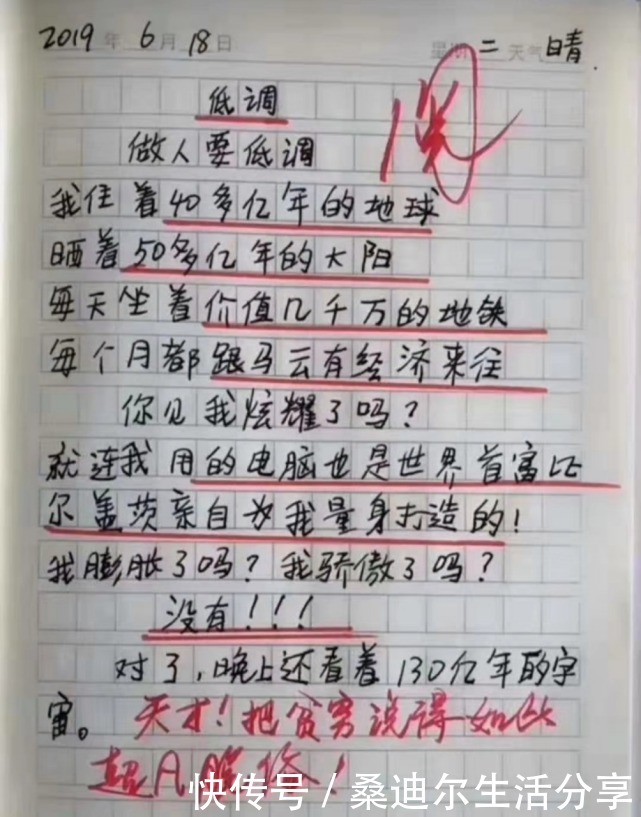 2019年6月18日 星期二 天气晴
阅
低调
做人要低调
我住着40多亿年的地球
晒着50多亿年的太阳
每天坐着价值几千万的地铁
每个月都跟马云有经济来往
你见我炫耀了吗？
就连我用的电脑也是世界首富比
尔盖茨亲自为我量身打造的！
我膨胀了吗？我骄傲了吗？
没有！！！
对了，晚上还看着130亿年的宇
宙。天才！把贫穷说得如此
超凡脱俗！
快传号 / 桑迪尔生活分享